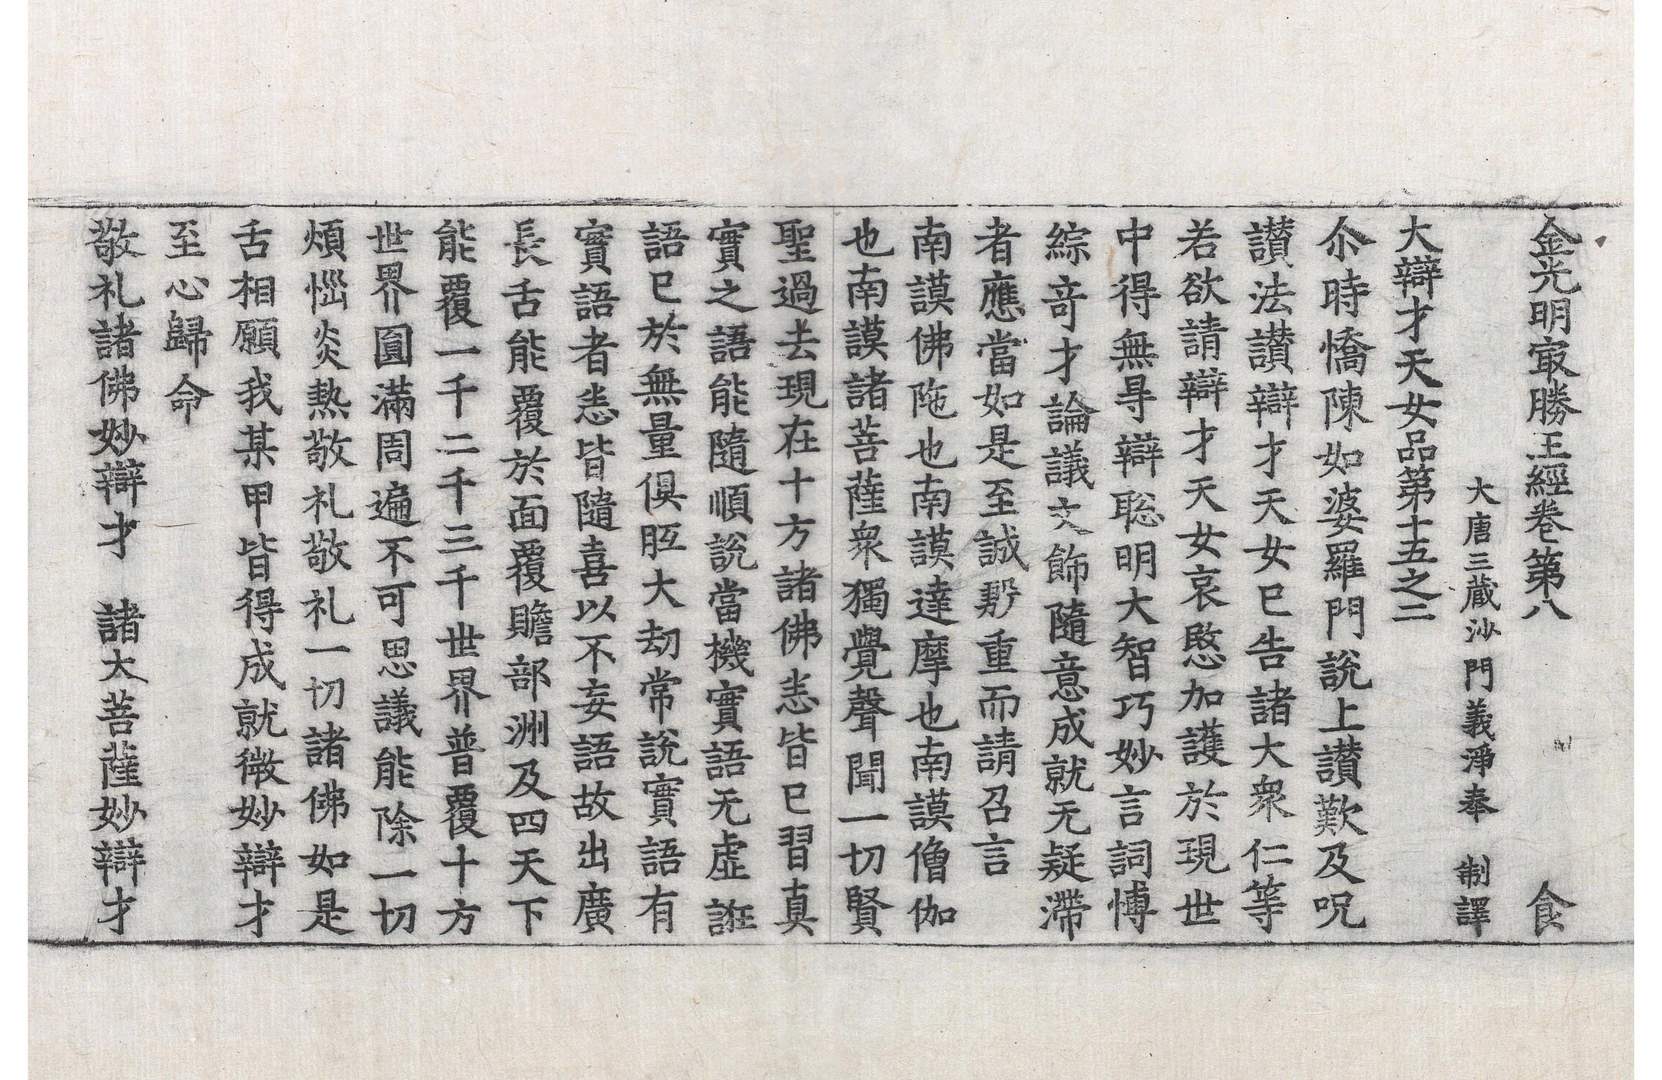 金光明冣勝王經卷第八 食
大唐三蔵沙門義淨奉 制譯
大辯才天女品第十五之二
尒時憍陳如婆羅門說上讃歎及呪
讃法讃辯才天女已告諸大衆仁等
若欲請辯才天女哀愍加護於現世
中得無㝵辯聡明大智巧妙言詞博
綜竒才論議文飾隨意成就无疑滯
者應當如是至誠慇重而請召言
南謨佛陁也南謨達摩也南謨僧伽
也南謨諸菩薩衆獨覺聲聞一切賢
聖過去現在十方諸佛悉皆已習真
實之語能隨順說當機實語无虛誑
語已於無量俱胝大劫常說實語有
實語者悉皆隨喜以不妄語故出廣
長舌能覆於面覆贍部洲及四天下
能覆一千二千三千世界普覆十方
世界圓滿周遍不可思議能除一切
煩惱炎熱敬礼敬礼一切諸佛如是
舌相願我某甲皆得成就微妙辯才
至心歸命
敬礼諸佛妙辯才 諸大菩薩妙辯才